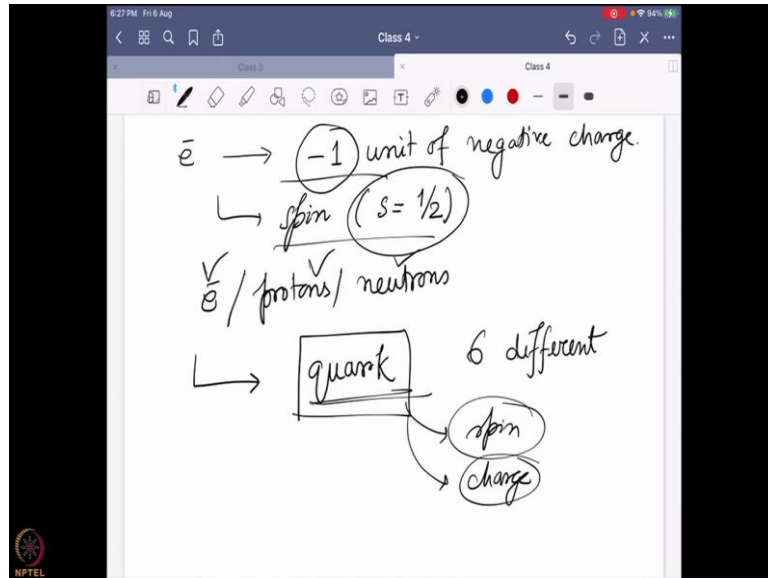 6:27 PM Fri 6 Aug
94%
Class 4
Class 3
Class 4
ē → -1 unit of negative charge.
spin (s = 1/2)
ē / protons / neutrons
quark 6 different
spin
charge
NPTEL